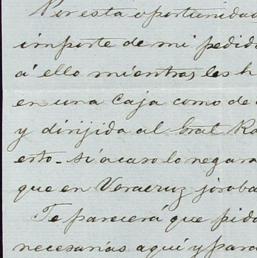 Por esta oportunidad
importe de mi pedid
á ello mientras les h
en una caja como de
y dirijida al Gral Ro
erto - si acaso lo negara
que en Veracruz joroba
Te parecerá que pido
necesarias aquí y para